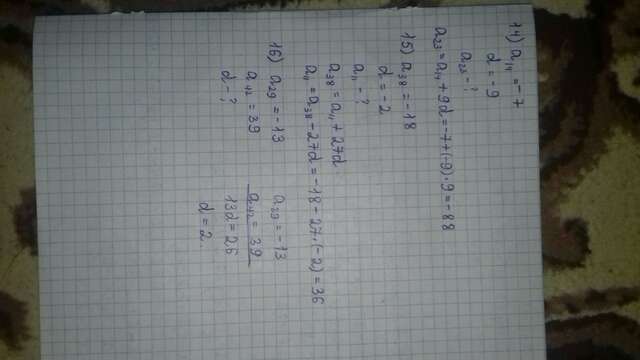 14) a₁₄ = -7
d = -9
a₂₃ - ?
a₂₃ = a₁₄ + 9d = -7 + (-9)·9 = -88
15) a₃₈ = -18
d = -2
a₁₁ - ?
a₃₈ = a₁₁ + 27d
a₁₁ = a₃₈ - 27d = -18 - 27·(-2) = 36
16) a₂₉ = -13 a₂₉ = -13
a₄₂ = 39 a₄₂ = 39
d - ? 13d = 26
d = 2.